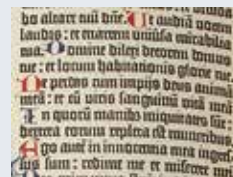 bo altare tuū dñe. Ut audiā vocem
laudis: et enarrem universa mirabilia
tua. Domine dilexi decorem domus
tue: et locum habitationis glorie tue.
Ne perdas cum impijs deus animā
meā: et cū viris sanguinū vitā meā
In quorū manibꝫ iniquitates sūt:
dextera eorum repleta est muneribus.
Ego autē in innocentia mea ingres
sus sum: redime me et miserere mei